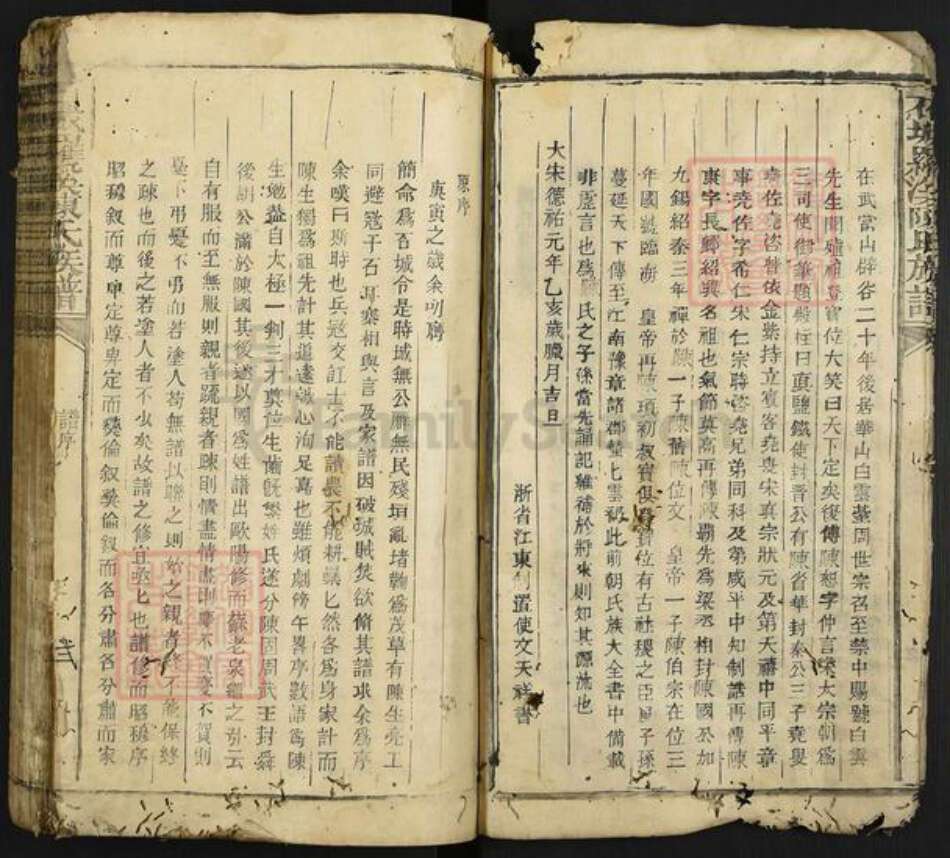 在武當山辟谷二十年後居華山白雲臺周世宗召至禁中賜號白雲
先生聞藝祖登寶位大笑曰天下定矣後傳陳恕字仲言宋太宗朝為
三司使御筆題殿柱曰真鹽鐵使封晋公有陳省華封秦公三子堯叟
堯佐堯咨皆依金紫持立賓客堯叟宋真宗狀元及第天禧中同平章
事堯佐字希仁宋仁宗聘咨堯兄弟同科及第咸平中知制誥再傳陳
東字長卿紹興名祖也氣節莫高再傳陳霸先為梁丞相封陳國公加
九錫紹泰三年禪於陳一子陳舊陳位文 皇帝一子陳伯宗在位三
年國號臨海 皇帝再陳頊初叔寶俱登位有古社稷之臣子孫
蔓延天下傳至江南豫章諸郡此前朝氏族大全書中備載
非虛言也陳氏之子孫當先誦記雖補於將來則知其源流也
大宋德祐元年乙亥歲臘月吉日
浙省江東制置使文天祥書
原序
庚寅之歲余叨膺
簡命為百城令是時城無公廨無民殘垣亂堵鞠為茂草有陳生亮工
同避寇于石寨相與言及家譜因破城賊焚欲脩其譜求余為序
余嘆曰斯時也兵寇交訌士不能讀農不能耕然各為身家計而
陳生獨為祖先計其追遠誠心洵足嘉也雖煩劇傍午畧序數語為陳
生勉蓋自太極一判三才奠位生齒既繁姓氏遂分陳固周武王封舜
後胡公滿於陳國其後遂以國為姓譜出歐陽修而蘇老泉繼之引云
自有服而至無服則親者疎親者疎則情盡情盡則慶不賀憂不弔
慶不賀憂不弔而若塗人苟無譜以聯之則始之親者終不能保終
之疎也而後之若塗人者不少矣故譜之修宜亟也譜修而昭穆序
昭穆叙而尊卑定尊卑定而彝倫叙彝倫叙而各分肅各分肅而家
譜序
陳氏族譜
FamilySearch